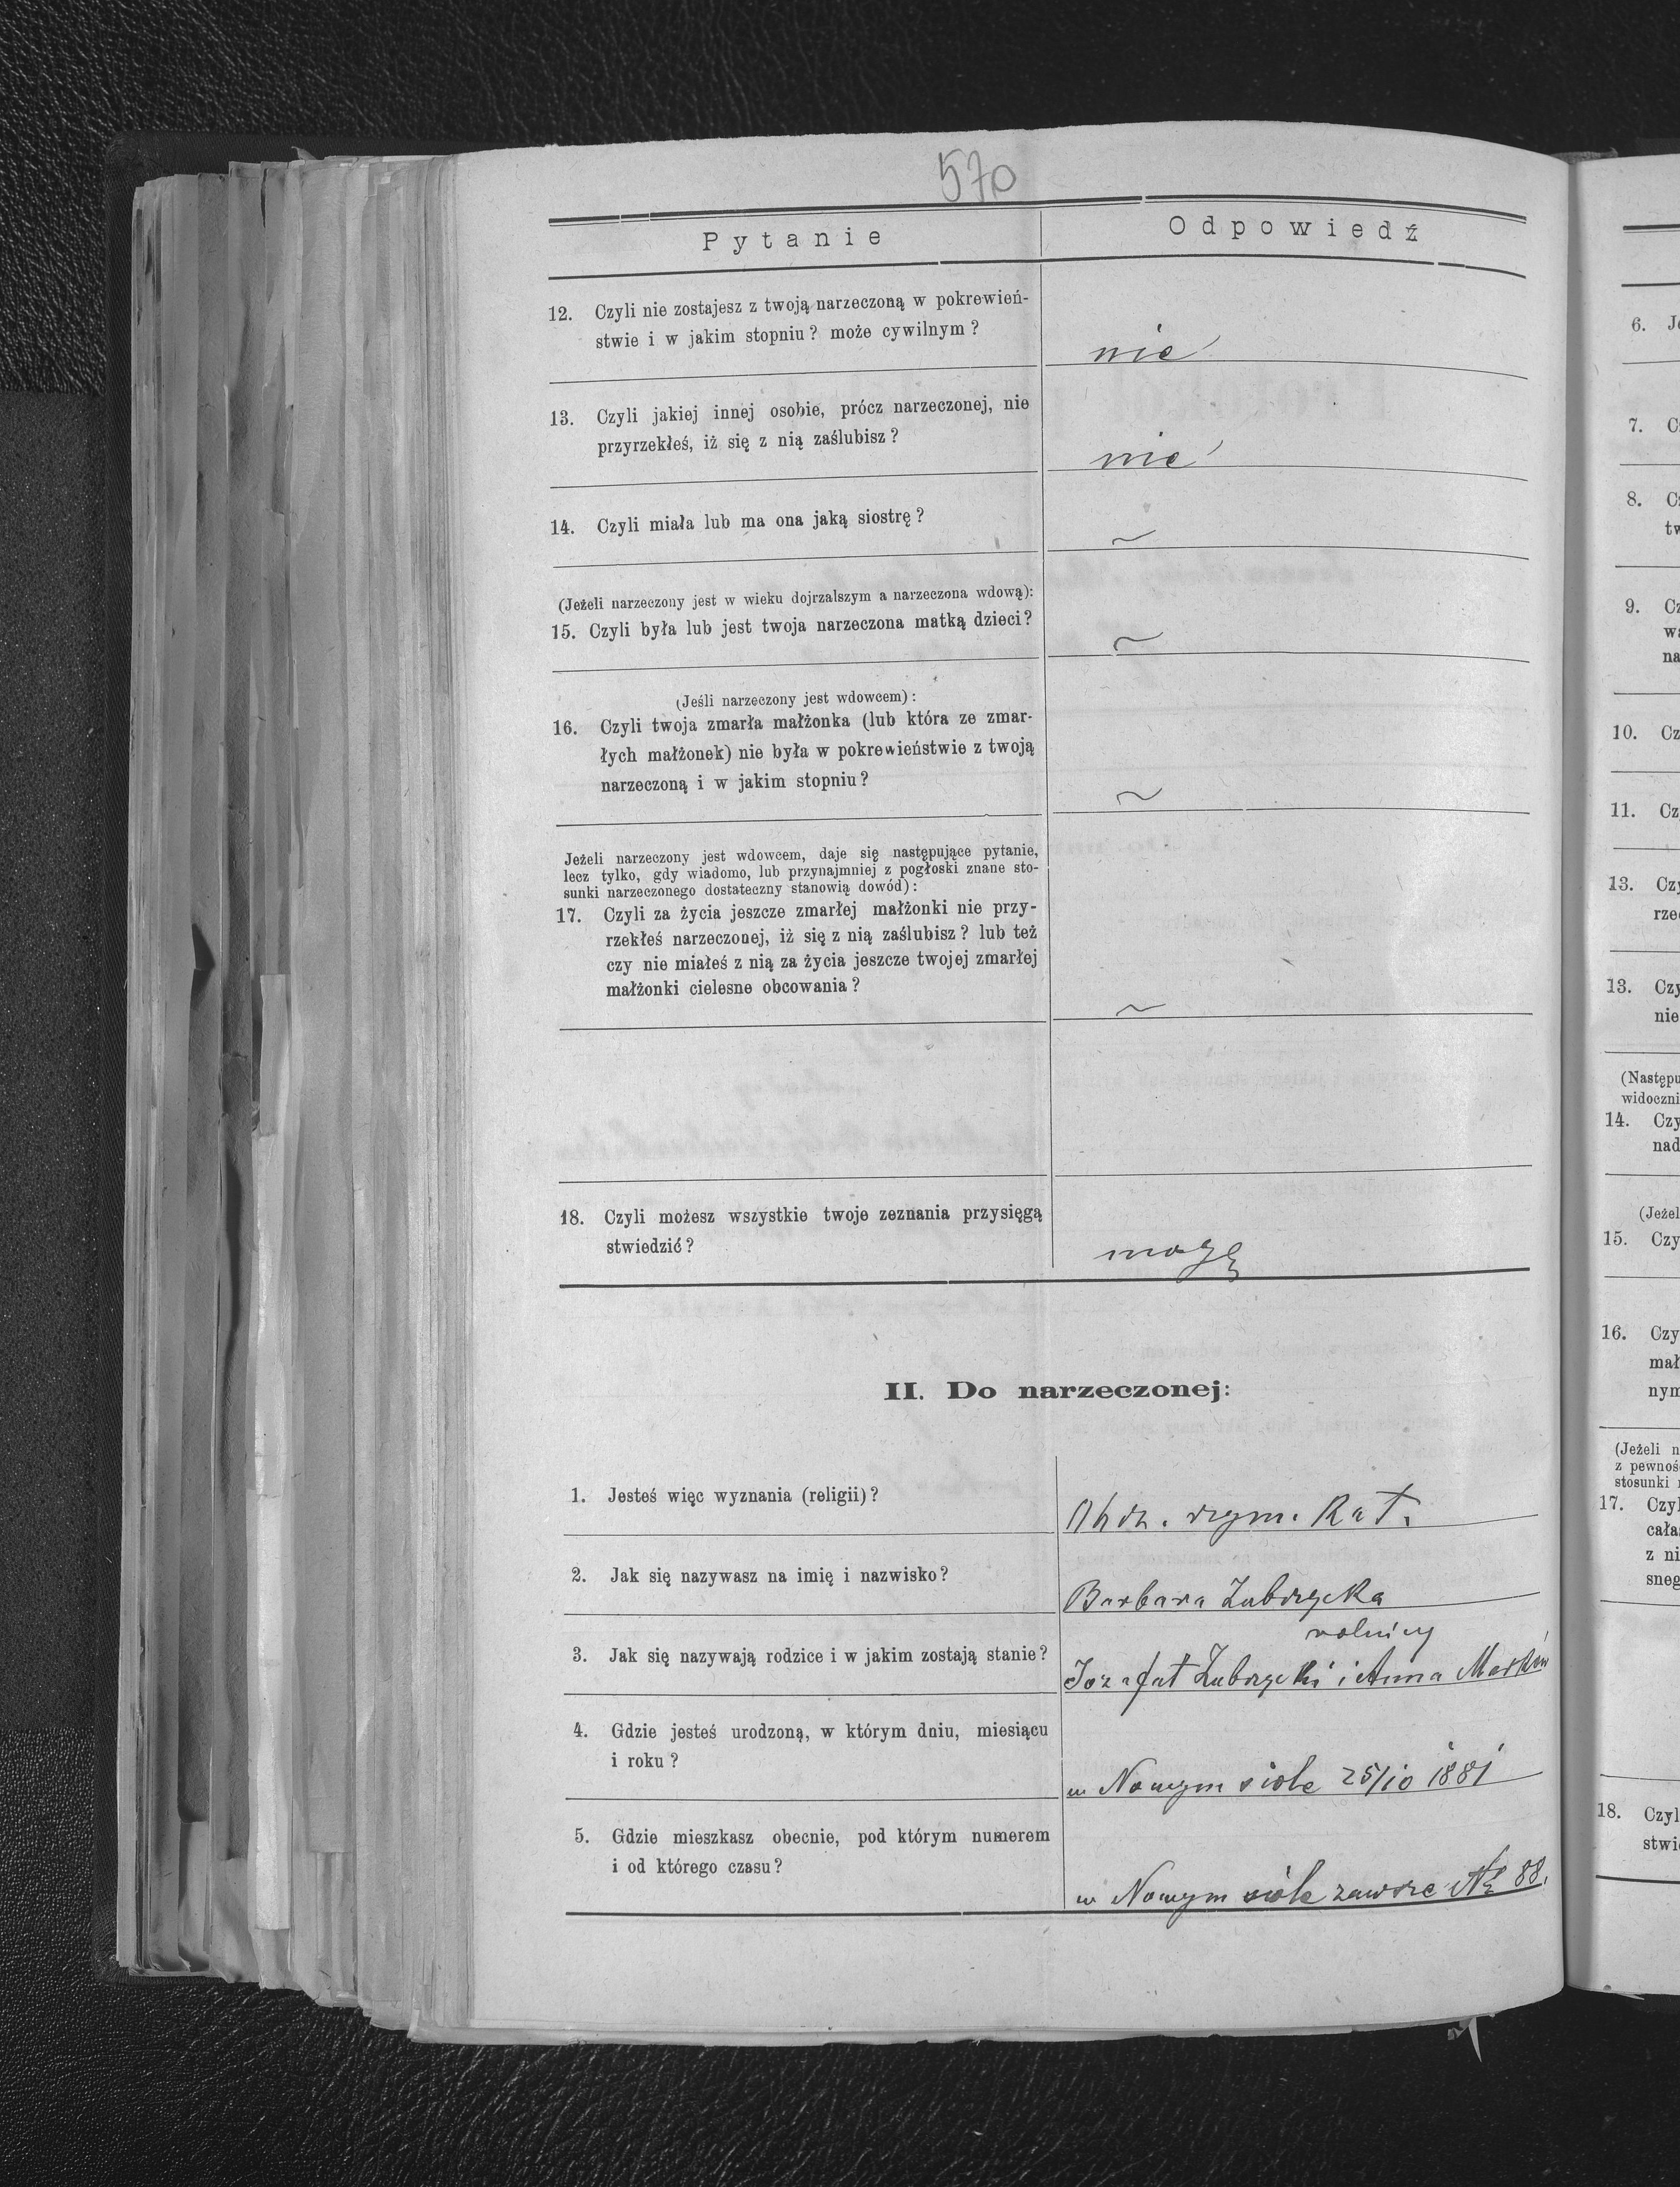 570
Pytanie
Odpowiedź
12. Czyli nie zostajesz z twoją narzeczoną w pokrewień-
stwie i w jakim stopniu? może cywilnym?
nie
13. Czyli jakiej innej osobie, prócz narzeczonej, nie
przyrzekłeś, iż się z nią zaślubisz?
nie
14. Czyli miała lub ma ona jaką siostrę?
~
(Jeżeli narzeczony jest w wieku dojrzalszym a narzeczona wdową):
15. Czyli była lub jest twoja narzeczona matką dzieci?
~
(Jeśli narzeczony jest wdowcem):
16. Czyli twoja zmarła małżonka (lub która ze zmar-
łych małżonek) nie była w pokrewieństwie z twoją
narzeczoną i w jakim stopniu?
~
Jeżeli narzeczony jest wdowcem, daje się następujące pytanie,
lecz tylko, gdy wiadomo, lub przynajmniej z pogłoski znane sto-
sunki narzeczonego dostateczny stanowią dowód):
17. Czyli za życia jeszcze zmarłej małżonki nie przy-
rzekłeś narzeczonej, iż się z nią zaślubisz? lub też
czy nie miałeś z nią za życia jeszcze twojej zmarłej
małżonki cielesne obcowania?
~
18. Czyli możesz wszystkie twoje zeznania przysięgą
stwiedzić?
mogę
II. Do narzeczonej:
1. Jesteś więc wyznania (religii)?
Obrz. rzym. Kat.
2. Jak się nazywasz na imię i nazwisko?
Barbara Zubrzycka
rolnicy
3. Jak się nazywają rodzice i w jakim zostają stanie?
Jozafat Zubrzycki i Anna
4. Gdzie jesteś urodzoną, w którym dniu, miesiącu
i roku?
w Nowym siole 25/10 1881
5. Gdzie mieszkasz obecnie, pod którym numerem
i od którego czasu?
w Nowym siole zawsze № 88.
6. Je
7. C
8. C
tw
9. Cz
wa
na
10. Cz
11. Cz
13. Czy
rze
13. Czy
nie
(Następu
widoczni
14. Czy
nad
(Jeżel
15. Czy
16. Czy
mał
nym
(Jeżeli n
z pewnoś
stosunki
17. Czyl
cała
z ni
sneg
18. Czyl
stwi